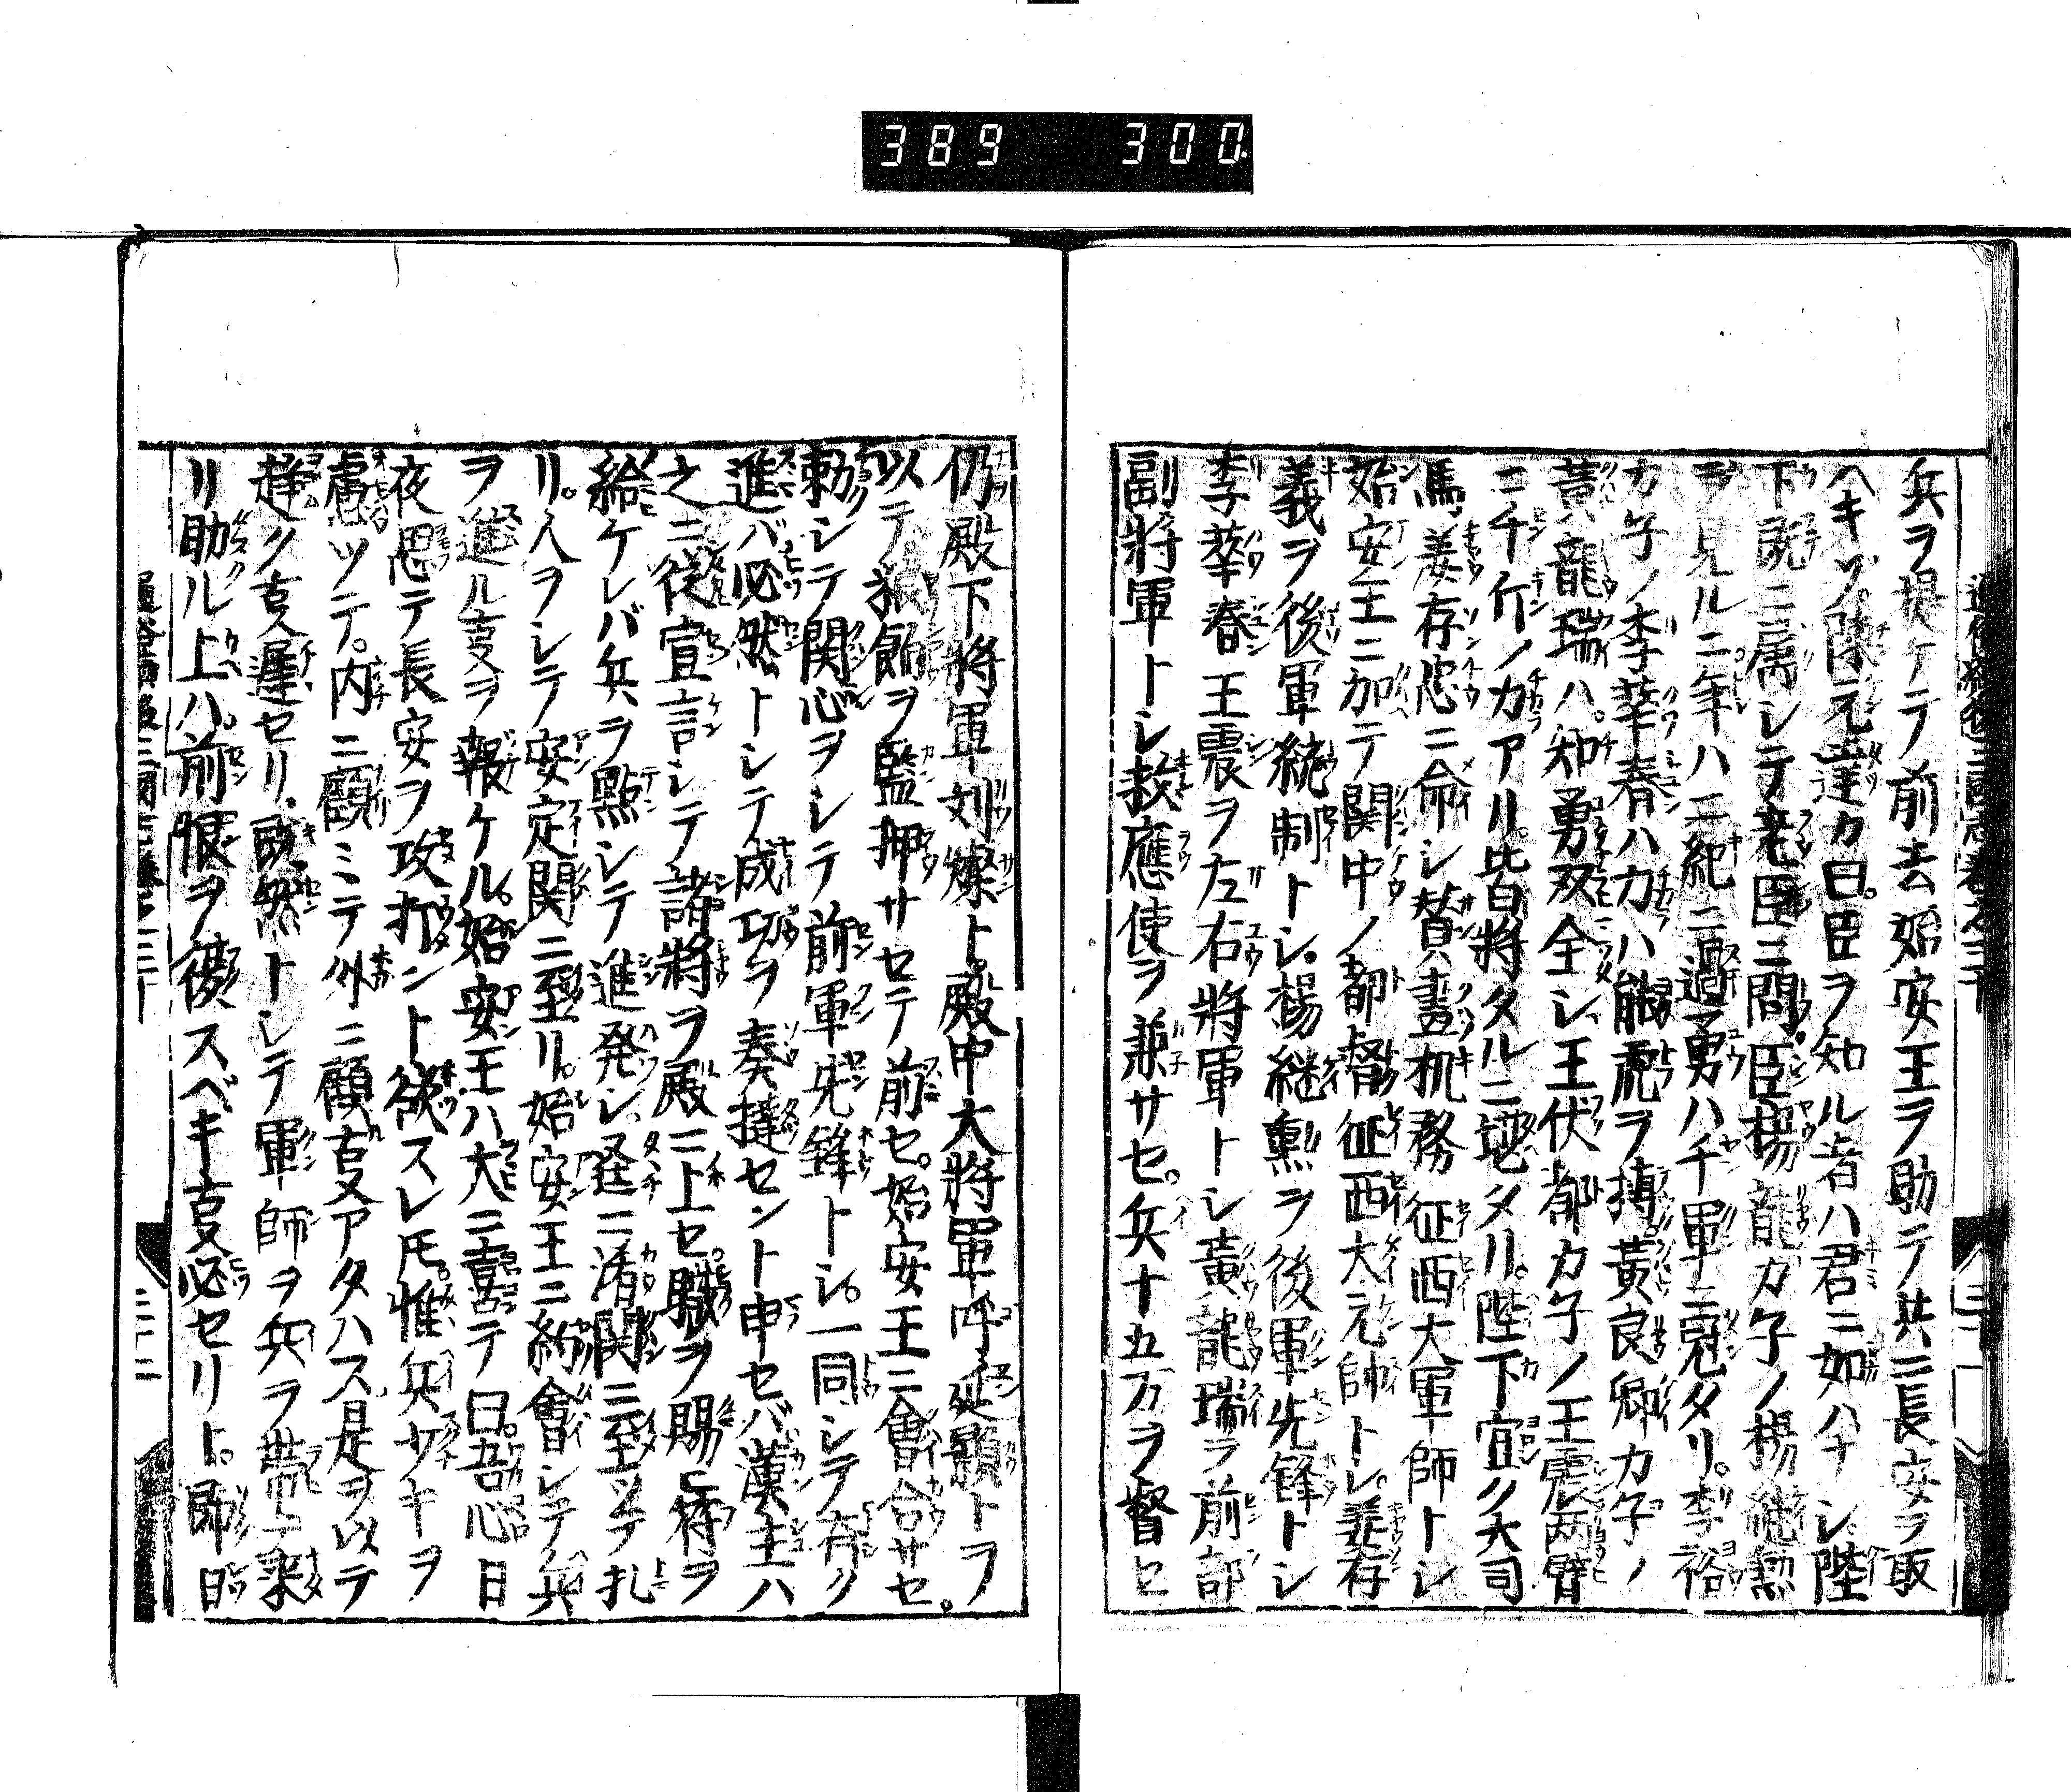 389 300
兵ヲ提ケテ前去始安王ヲ助テ共ニ長安ヲ取
ヘキゾ。陳元達カ曰。臣ヲ知ル者ハ君ニ如ハナシ。陛
下既ニ属シテ老臣ニ問。臣楊龍カ子ノ楊継勲
ヲ見ルニ年ハ二紀ニ過。勇ハ千軍ニ冠タリ。李裕
カ子ノ李華春ハ力ハ能乕ヲ搏。黄良卿カ子ノ
黄龍瑞ハ。知勇双全シ。王伏都カ子ノ王震両臂
ニ千斤ノ力アリ。皆將タルニ堪タリ。陛下宜ク大司
馬姜存忠ニ命シ賛畫机務征西大軍師トシ
始安王ニ加テ関中ノ都督征西大元帥トシ。姜存
義ヲ後軍統制トシ。楊継勲ヲ後軍先鋒トシ
李華春王震ヲ左右將軍トシ黄龍瑞ヲ前部
副將軍トシ救應使ヲ兼サセ。兵十五万ヲ督セ
通俗續後三國志卷之三十
仍殿下將軍刘燦ト。殿中大將軍呼延顥トヲ
以テ粮餉ヲ監押サセテ前セ。始安王ニ會合サセ。
勅シテ関心ヲシテ前軍先鋒トシ。一同シテ
進バ必然トシテ成功ヲ奏撻セント申セバ。漢主ハ
之ニ従宣言シテ諸將ヲ殿ニ上セ。職ヲ賜ヒ符ヲ
給ケレバ兵ヲ點シテ進発シ。迳ニ潼関ニ至ツテ札
リ。人ヲシテ安定関ニ至リ。始安王ニ約會シテ兵
ヲ進ル𫝆ヲ報ケル。始安王ハ大ニ喜テ曰。吾心日
夜思テ長安ヲ攻打ント欲スレ𪜈。惟兵サキヲ
慮ツテ。内ニ顧ミテ外ニ顧𫝆アタハス。是ヲ以テ
趂ク𫝆遲セリ。既然トシテ軍師ヲ兵ヲ帶テ来
リ助ル上ハ。前恨ヲ復スベキ𫝆必セリト。即日
二十二